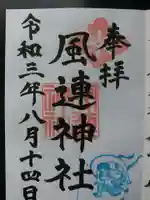 奉拝
風連神社
令和三年八月十四日